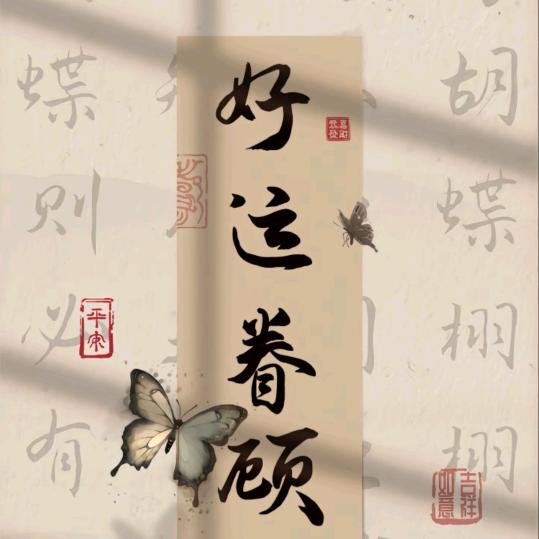 胡蝶栩栩
吉祥
如意
好运眷顾
平安
蝶则必有